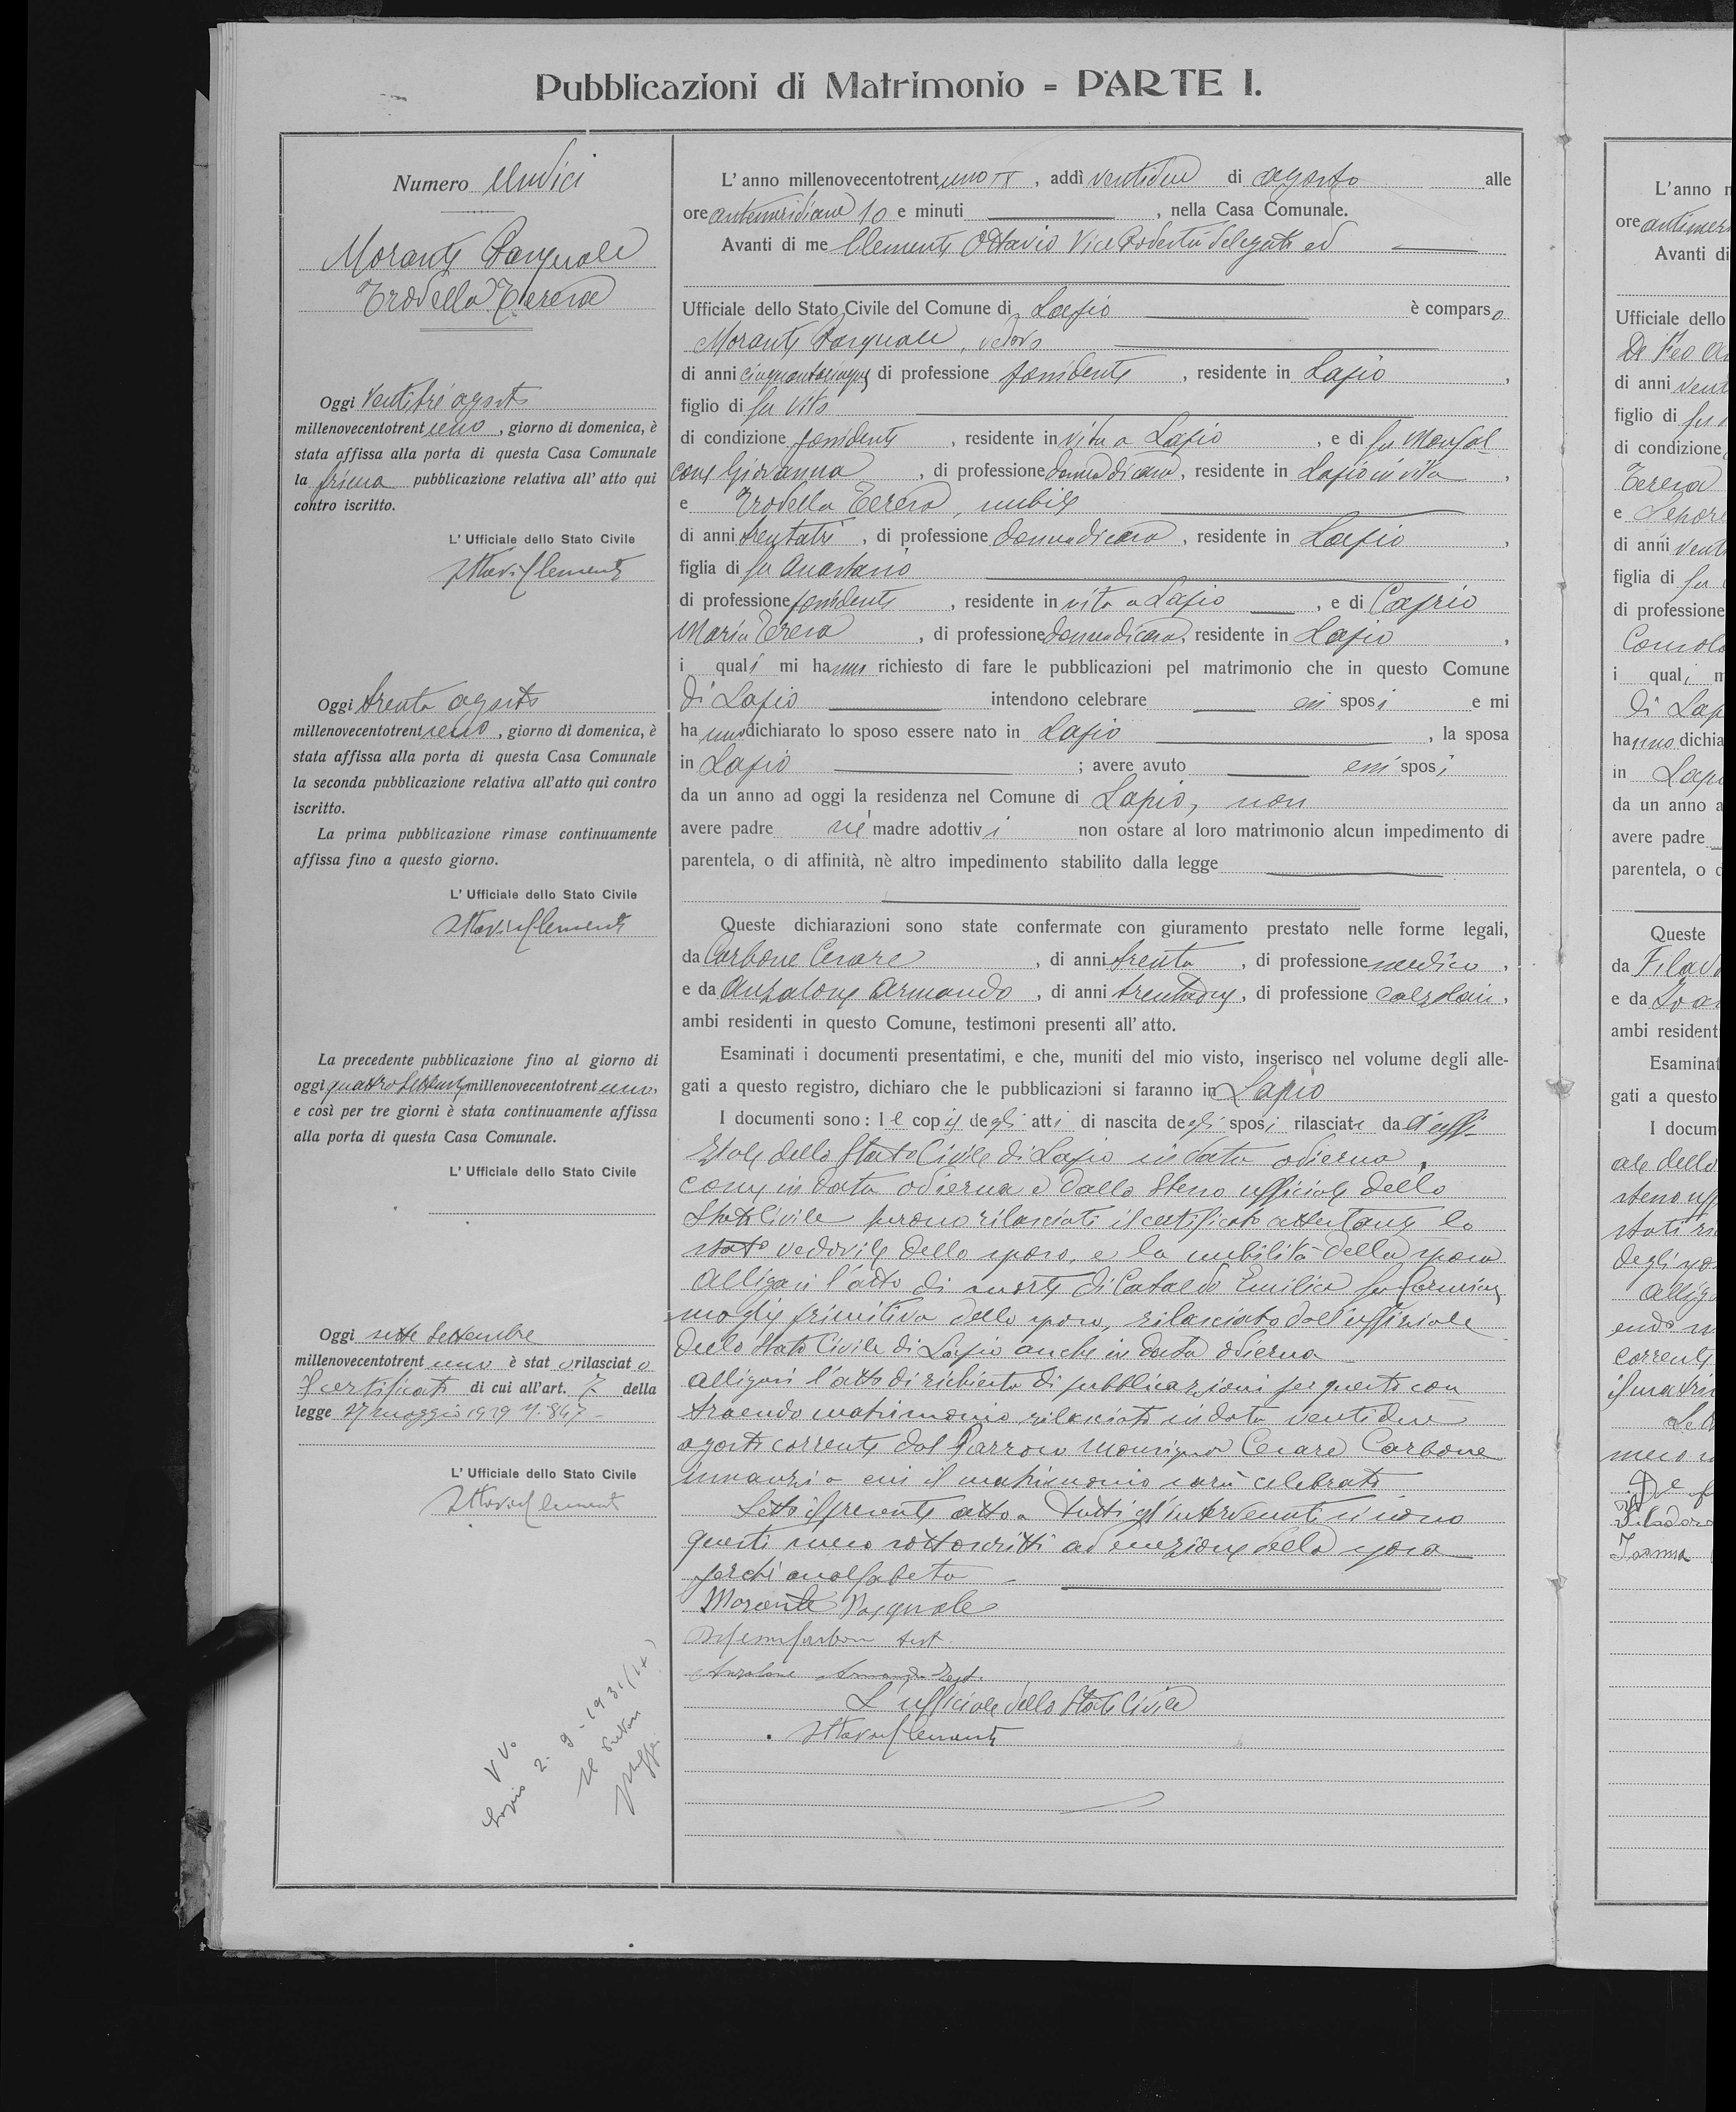 Pubblicazioni di Matrimonio = PARTE I.
Numero Undici
Morante Pasquale
Trodella Teresa
Oggi ventitré agosto
millenovecentotrent uno, giorno di domenica, è
stata affissa alla porta di questa Casa Comunale
la prima pubblicazione relativa all'atto qui
contro iscritto.
L'Ufficiale dello Stato Civile
Ottavio Clemente
Oggi trenta agosto
millenovecentotrent uno, giorno di domenica, è
stata affissa alla porta di questa Casa Comunale
la seconda pubblicazione relativa all'atto qui contro
iscritto.
La prima pubblicazione rimase continuamente
affissa fino a questo giorno.
L'Ufficiale dello Stato Civile
Ottavio Clemente
La precedente pubblicazione fino al giorno di
oggi quattro settembre millenovecentotrent uno,
e così per tre giorni è stata continuamente affissa
alla porta di questa Casa Comunale.
L'Ufficiale dello Stato Civile
Oggi sette settembre
millenovecentotrent uno è stat o rilasciat o
Il certificato di cui all'art. 7 della
legge 27 maggio 1929 N. 847
L'Ufficiale dello Stato Civile
Ottavio Clemente
V V°
Lapio 2-9-1931
Il
L'anno millenovecentotrent uno IX, addì ventidue di agosto alle
ore antimeridiane 10 e minuti , nella Casa Comunale.
Avanti di me Clemente Ottavio Vice Podestà delegato ed
Ufficiale dello Stato Civile del Comune di Lapio è compars o
Morante Pasquale, vedovo
di anni cinquantacinque di professione possidente, residente in Lapio,
figlio di fu Vito
di condizione possidente, residente in vita a Lapio, e di fu Monfal
cone Giovanna, di professione donna di casa, residente in Lapio in vita,
e Trodella Teresa, nubile
di anni trentatré, di professione donna di casa, residente in Lapio,
figlia di fu Anastasio
di professione possidente, residente in vita a Lapio, e di Caprio
Maria Teresa, di professione donna di casa, residente in Lapio,
i quali mi hanno richiesto di fare le pubblicazioni pel matrimonio che in questo Comune
di Lapio intendono celebrare essi sposi e mi
ha nno dichiarato lo sposo essere nato in Lapio, la sposa
in Lapio; avere avuto essi sposi
da un anno ad oggi la residenza nel Comune di Lapio, non
avere padre né madre adottivi non ostare al loro matrimonio alcun impedimento di
parentela, o di affinità, nè altro impedimento stabilito dalla legge
Queste dichiarazioni sono state confermate con giuramento prestato nelle forme legali,
da Carbone Cesare, di anni trenta, di professione medico,
e da Anzalone Armando, di anni trentadue, di professione calzolaio,
ambi residenti in questo Comune, testimoni presenti all'atto.
Esaminati i documenti presentatimi, e che, muniti del mio visto, inserisco nel volume degli alle-
gati a questo registro, dichiaro che le pubblicazioni si faranno in Lapio
I documenti sono: le copie degli atti di nascita degli sposi rilasciate da l'uffi-
ziale dello Stato Civile di Lapio in data odierna,
come in data odierna e dallo stesso ufficiale dello
Stato Civile furono rilasciati il certificato attestante lo
stato vedovile dello sposo, e la nubilità della sposa
Alligasi l'atto di morte di Cataldo Emilia fu Carmine
moglie primitiva dello sposo, rilasciato dall'uffiziale
dello Stato Civile di Lapio anche in data odierna
Alligasi l'atto di richiesta di pubblicazioni per questo con
traendo matrimonio rilasciato in data ventidue
agosto corrente dal Parroco Monsignor Cesare Carbone
innanzi a cui il matrimonio sarà celebrato
Letto il presente atto a tutti gl'intervenuti si sono
questi meco sottoscritti ad eccezione della sposa
perché analfabeta
Morante Pasquale
Carbone test.
Anzalone Armando Test.
L'ufficiale dello Stato Civile
Ottavio Clemente
L'anno
ore antimer
Avanti di
Ufficiale dello
De Feo
di anni vent
figlio di fu
di condizione
Teresa
e
di anni vent
figlia di fu
di professione
Consola
i quali
di Lap
hanno dichia
in Lapi
da un anno a
avere padre
parentela, o d
Queste
da Filad
e da
ambi resident
Esaminat
gati a questo
I docum
ale dello
stesso uff
degli spo
corrente
il matri
meco